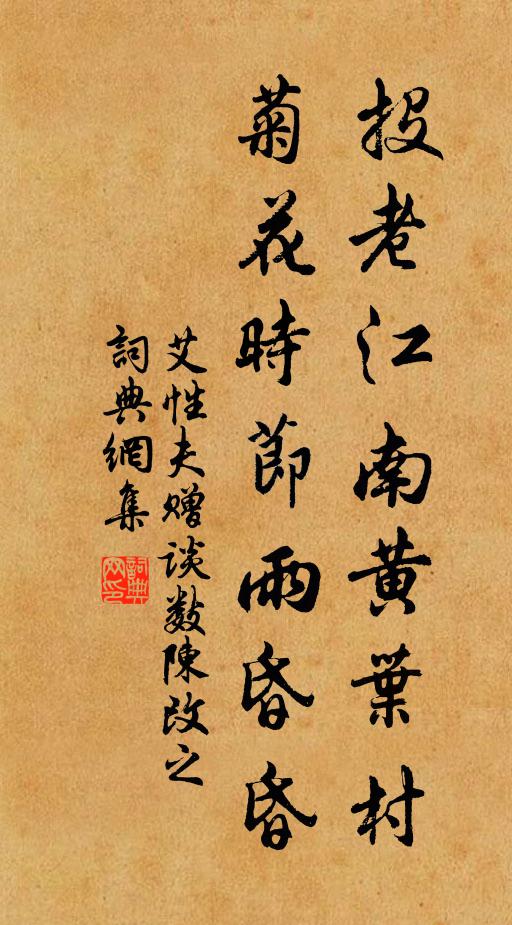 投老江南黄葉村
菊花時節雨昏昏
艾性夫赠谈数陳改之
詞典網集
詞典網印